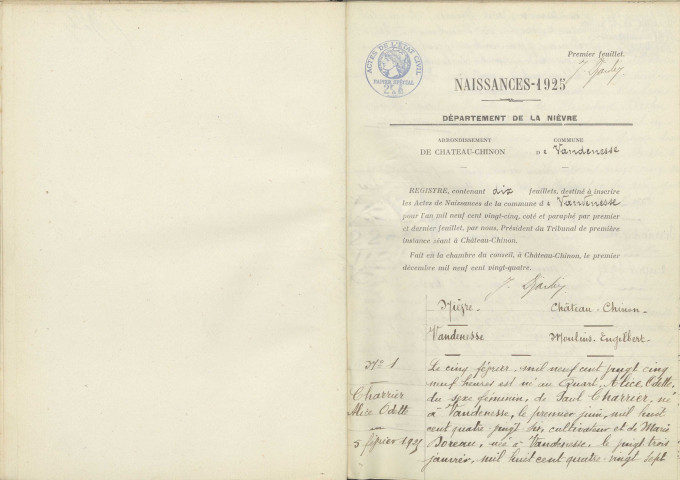 Premier feuillet.
ACTES DE L'ÉTAT CIVIL
PAPIER SPÉCIAL
NAISSANCES-1925
DÉPARTEMENT DE LA NIÈVRE
ARRONDISSEMENT
DE CHATEAU-CHINON
COMMUNE
DE Vandenesse
REGISTRE, contenant dix feuillets, destiné à inscrire
les Actes de Naissances de la commune de Vandenesse
pour l'an mil neuf cent vingt-cinq, coté et paraphé par premier
et dernier feuillet, par nous, Président du Tribunal de première
instance séant à Château-Chinon.
Fait en la chambre du conseil, à Château-Chinon, le premier
décembre mil neuf cent vingt-quatre.
Nièvre
Château-Chinon
Vandenesse
Moulins-Engelbert
N° 1
Charrier
Alice Odette
5 février 1925
Le cinq février mil neuf cent vingt cinq
neuf heures est né au Quart, Alice, Odette,
du sexe féminin, de Paul Charrier, né
à Vandenesse, le premier juin, mil huit
cent quatre-vingt cultivateur et de Marie
née à Vandenesse le vingt trois
janvier, mil huit cent quatre-vingt sept